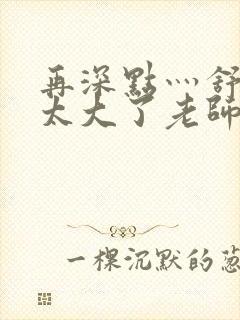 再深點灬舒
太大了老師
一棵沉默的蔥